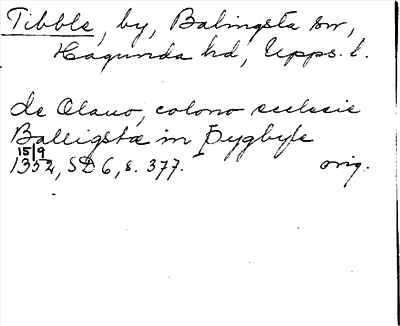 Tibble, by, Balingsta sn,
Hagunda hd, Upps. l.
de Olauo, colono ecclesie
Balligstæ in Þygbyle
15/9
1352, SD 6, s. 377. orig.